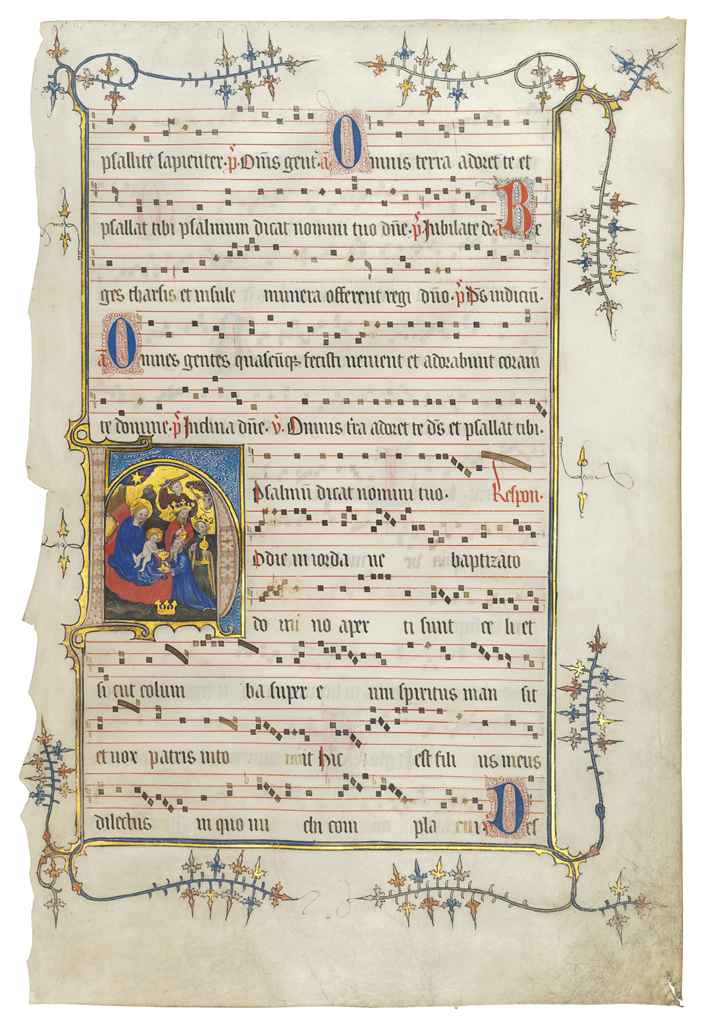 psallite sapienter. p. Om̄s gent. a Omnis terra adoret te et
psallat tibi psalmum dicat nomini tuo dn̄e. p Jubilate d. a Re
ges tharsis et insule munera offerent regi dn̄o. p Ds̄ iudiciū.
a Omnes gentes quascūq; fecisti venient et adorabunt coram
te domine. p Inclina dn̄e. v. Omnis t̄ra adoret te ds̄ et psallat tibi.
Psalmū dicat nomini tuo. Respon.
Hodie in iorda ne baptizato
do mi no aper ti sunt ce li et
si cut colum ba super e um spiritus man sit
et vox patris into nuit hic est fili us meus
dilectus in quo mi chi com pla cui Des